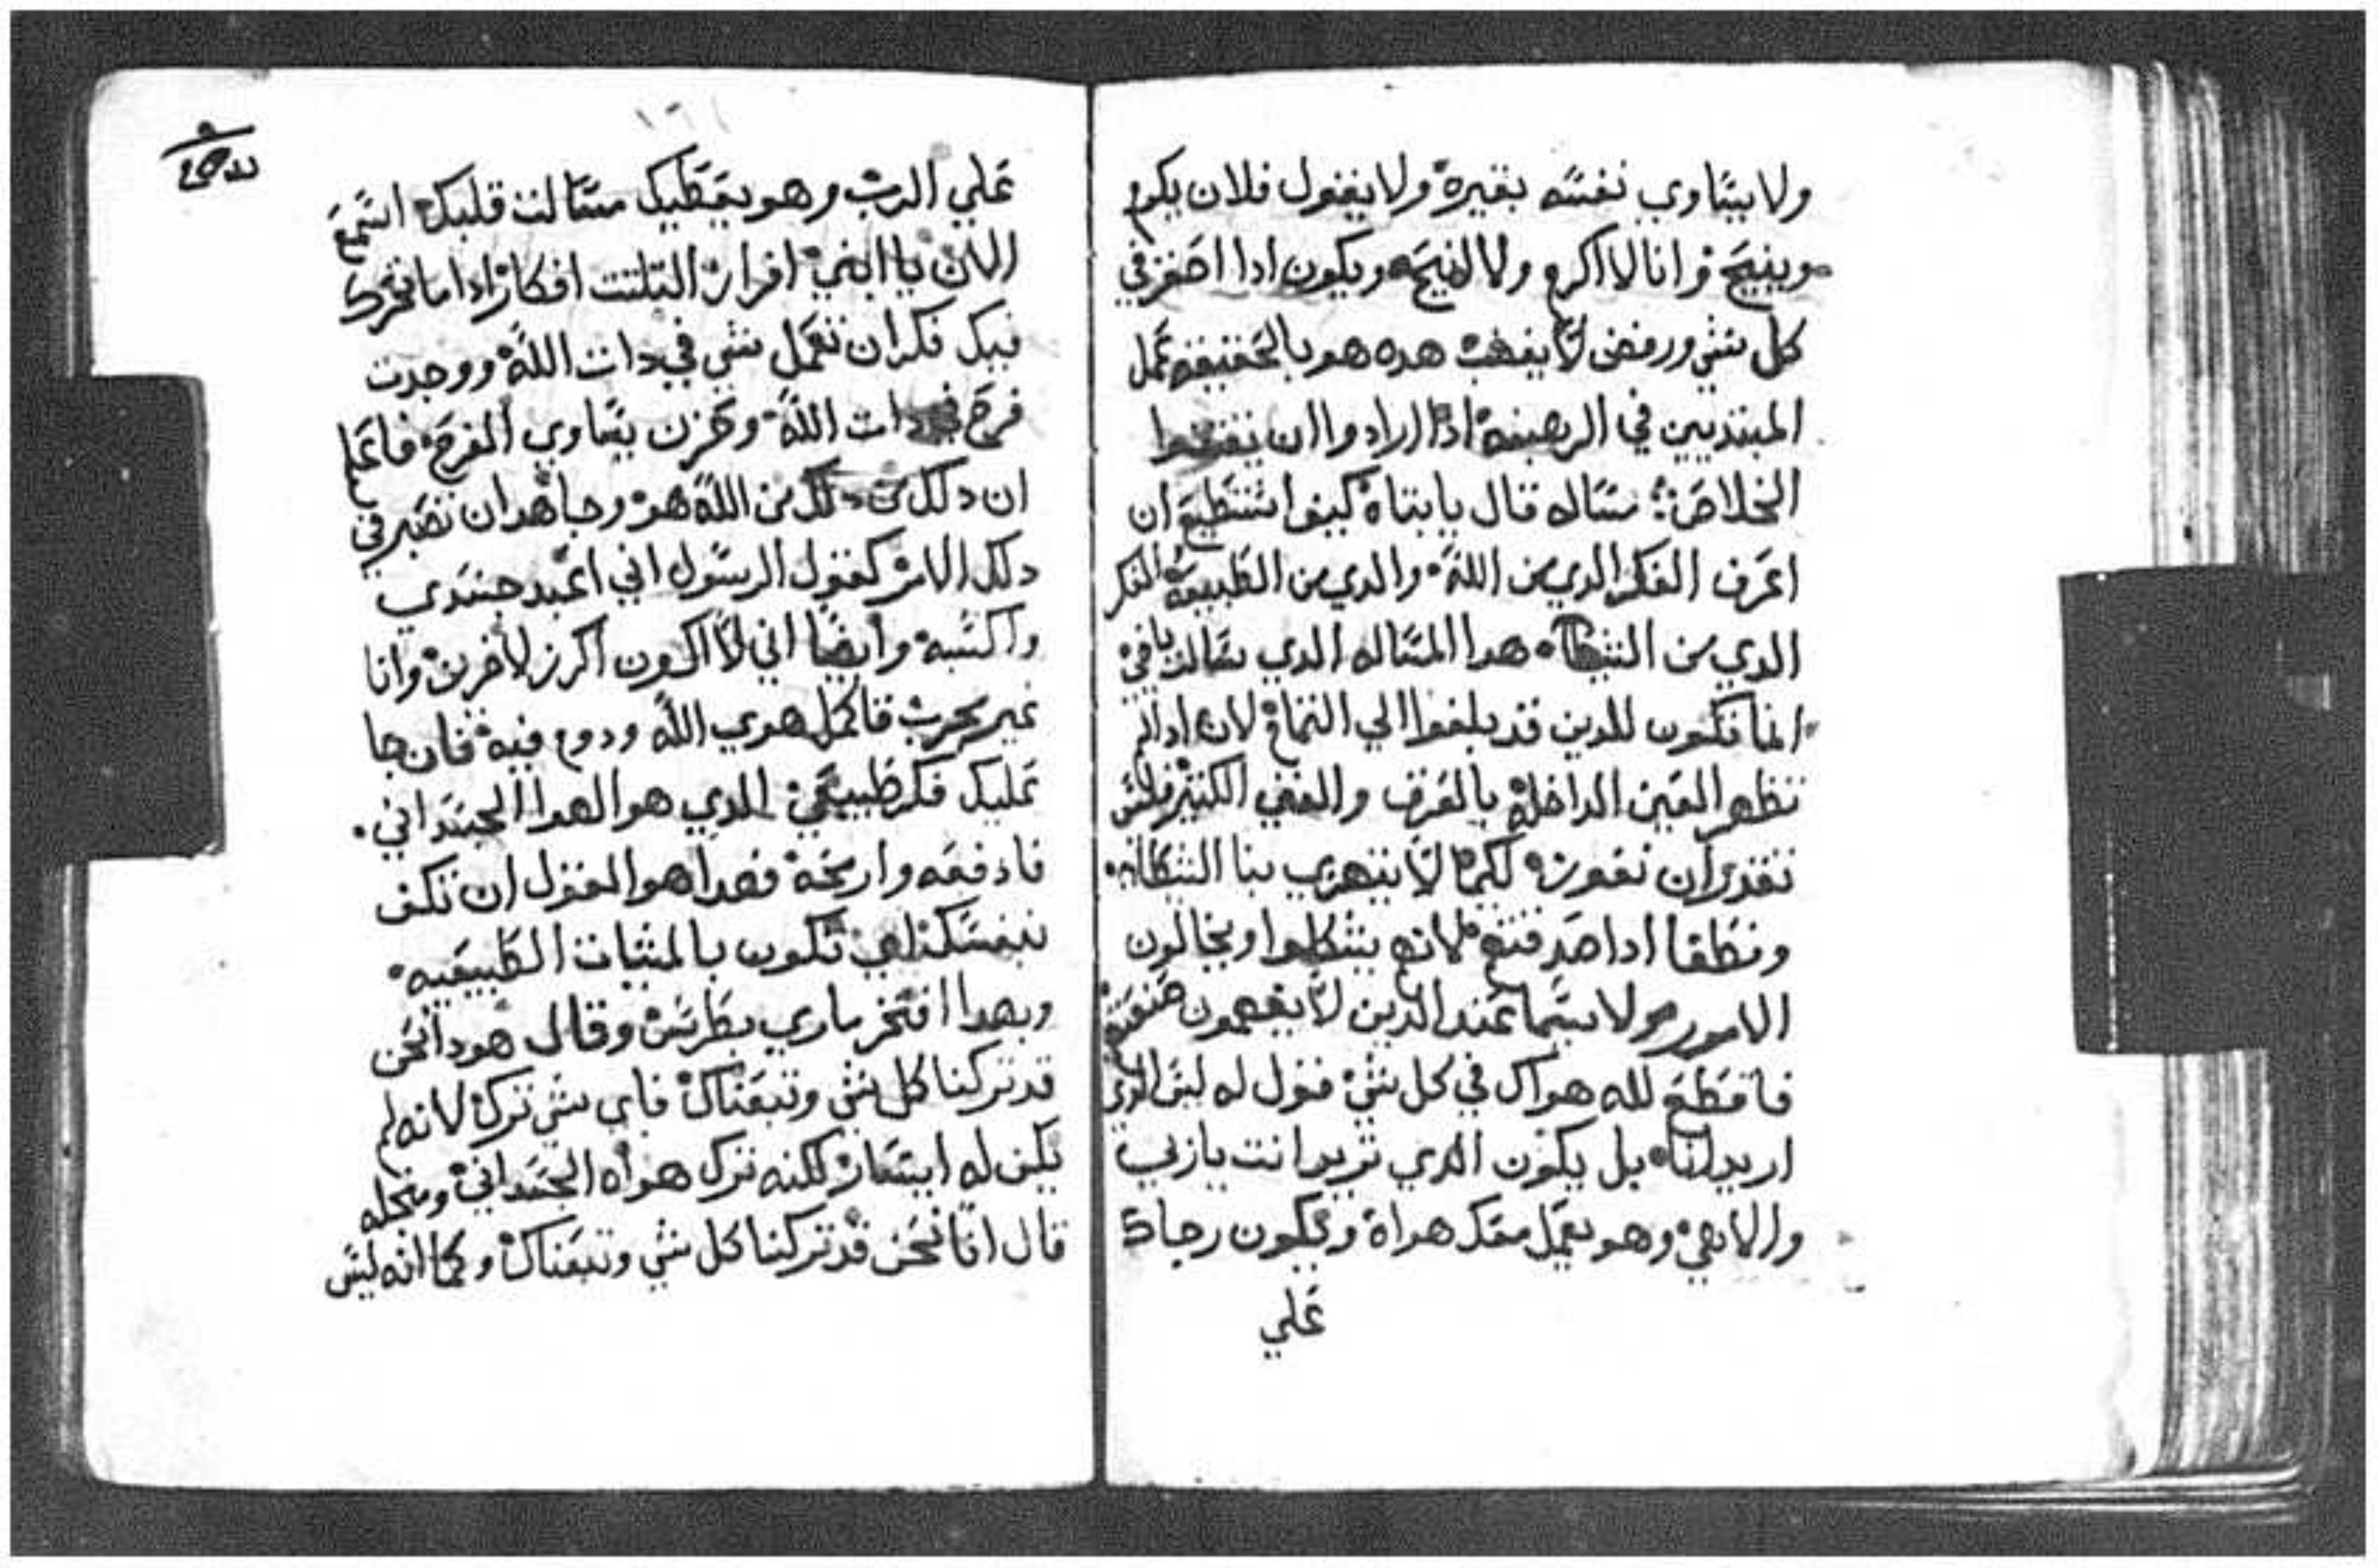 ولا يساوي نفسه بغيره ولا يقول فلان يكرم
وينيح وانا لا اكرم ولا انيح ويكون ادا احقر في
كل شي ورفض لا يغضب هده هو بالحقيقه عمل
المبتديين في الرهبنه ادا ارادوا ان يفتحوا
الخلاص: سساله قال يا بتاه كيف استطيع ان
اعرف الفكر الدي من الله والدي من الطبيعه الفكر
الدي من الشيطان هدا المساله الدي سالت
انما تكون للدين قد بلغوا الي التمام لان ادا لم
تطهر العين الداخله بالعرق والتعب الكتير فليس
تقدر ان تفوت لكيما لا يتهزي بنا الشيطان
ونطغا ادا صدقتهم لانهم يتشكلوا ويخالون
الامور ولا سيما عند الدين لا يفهمون
فاقطع لله هواك في كل شي قول له ليس الدي
اريد انا بل يكون الدي تريد انت يا ربي
والاهي وهو يعمل معك هواه ويكون رجاك
علي
١٦١
علي الرب وهو يعطيك مسالت قلبك اسمع
الان يا ابني افراز التلتت افكار ادا ما تحرك
فيك فكر ان تعمل شي في دات الله ووجدت
فرح في دات الله وحزن يساوي الفرح فاعلم
ان دلك من الله هو وجاهد ان تصبر في
دلك الامر كقول الرسول اني اعبد جسدي
واكسبه وايضا اني لا اكون اكرز لاخرين وانا
غير مجرب فاكمل هوي الله ودوم فيه فان جا
عليك فكر طبيعي الدي هو الهوا الجسداني
فادفعه واريحه فهدا هو القول ان تكف
بنفسك تكون بالمشيات الطبيعيه
وبهدا افتخر ماري بطرس وقال هودا نحن
قد تركنا كل شي وتبعناك فاي شي ترك لانه لم
تكن له ايسار لكنه ترك هواه الجسداني
قال انا نحن قد تركنا كل شي وتبعناك وكما انه ليس